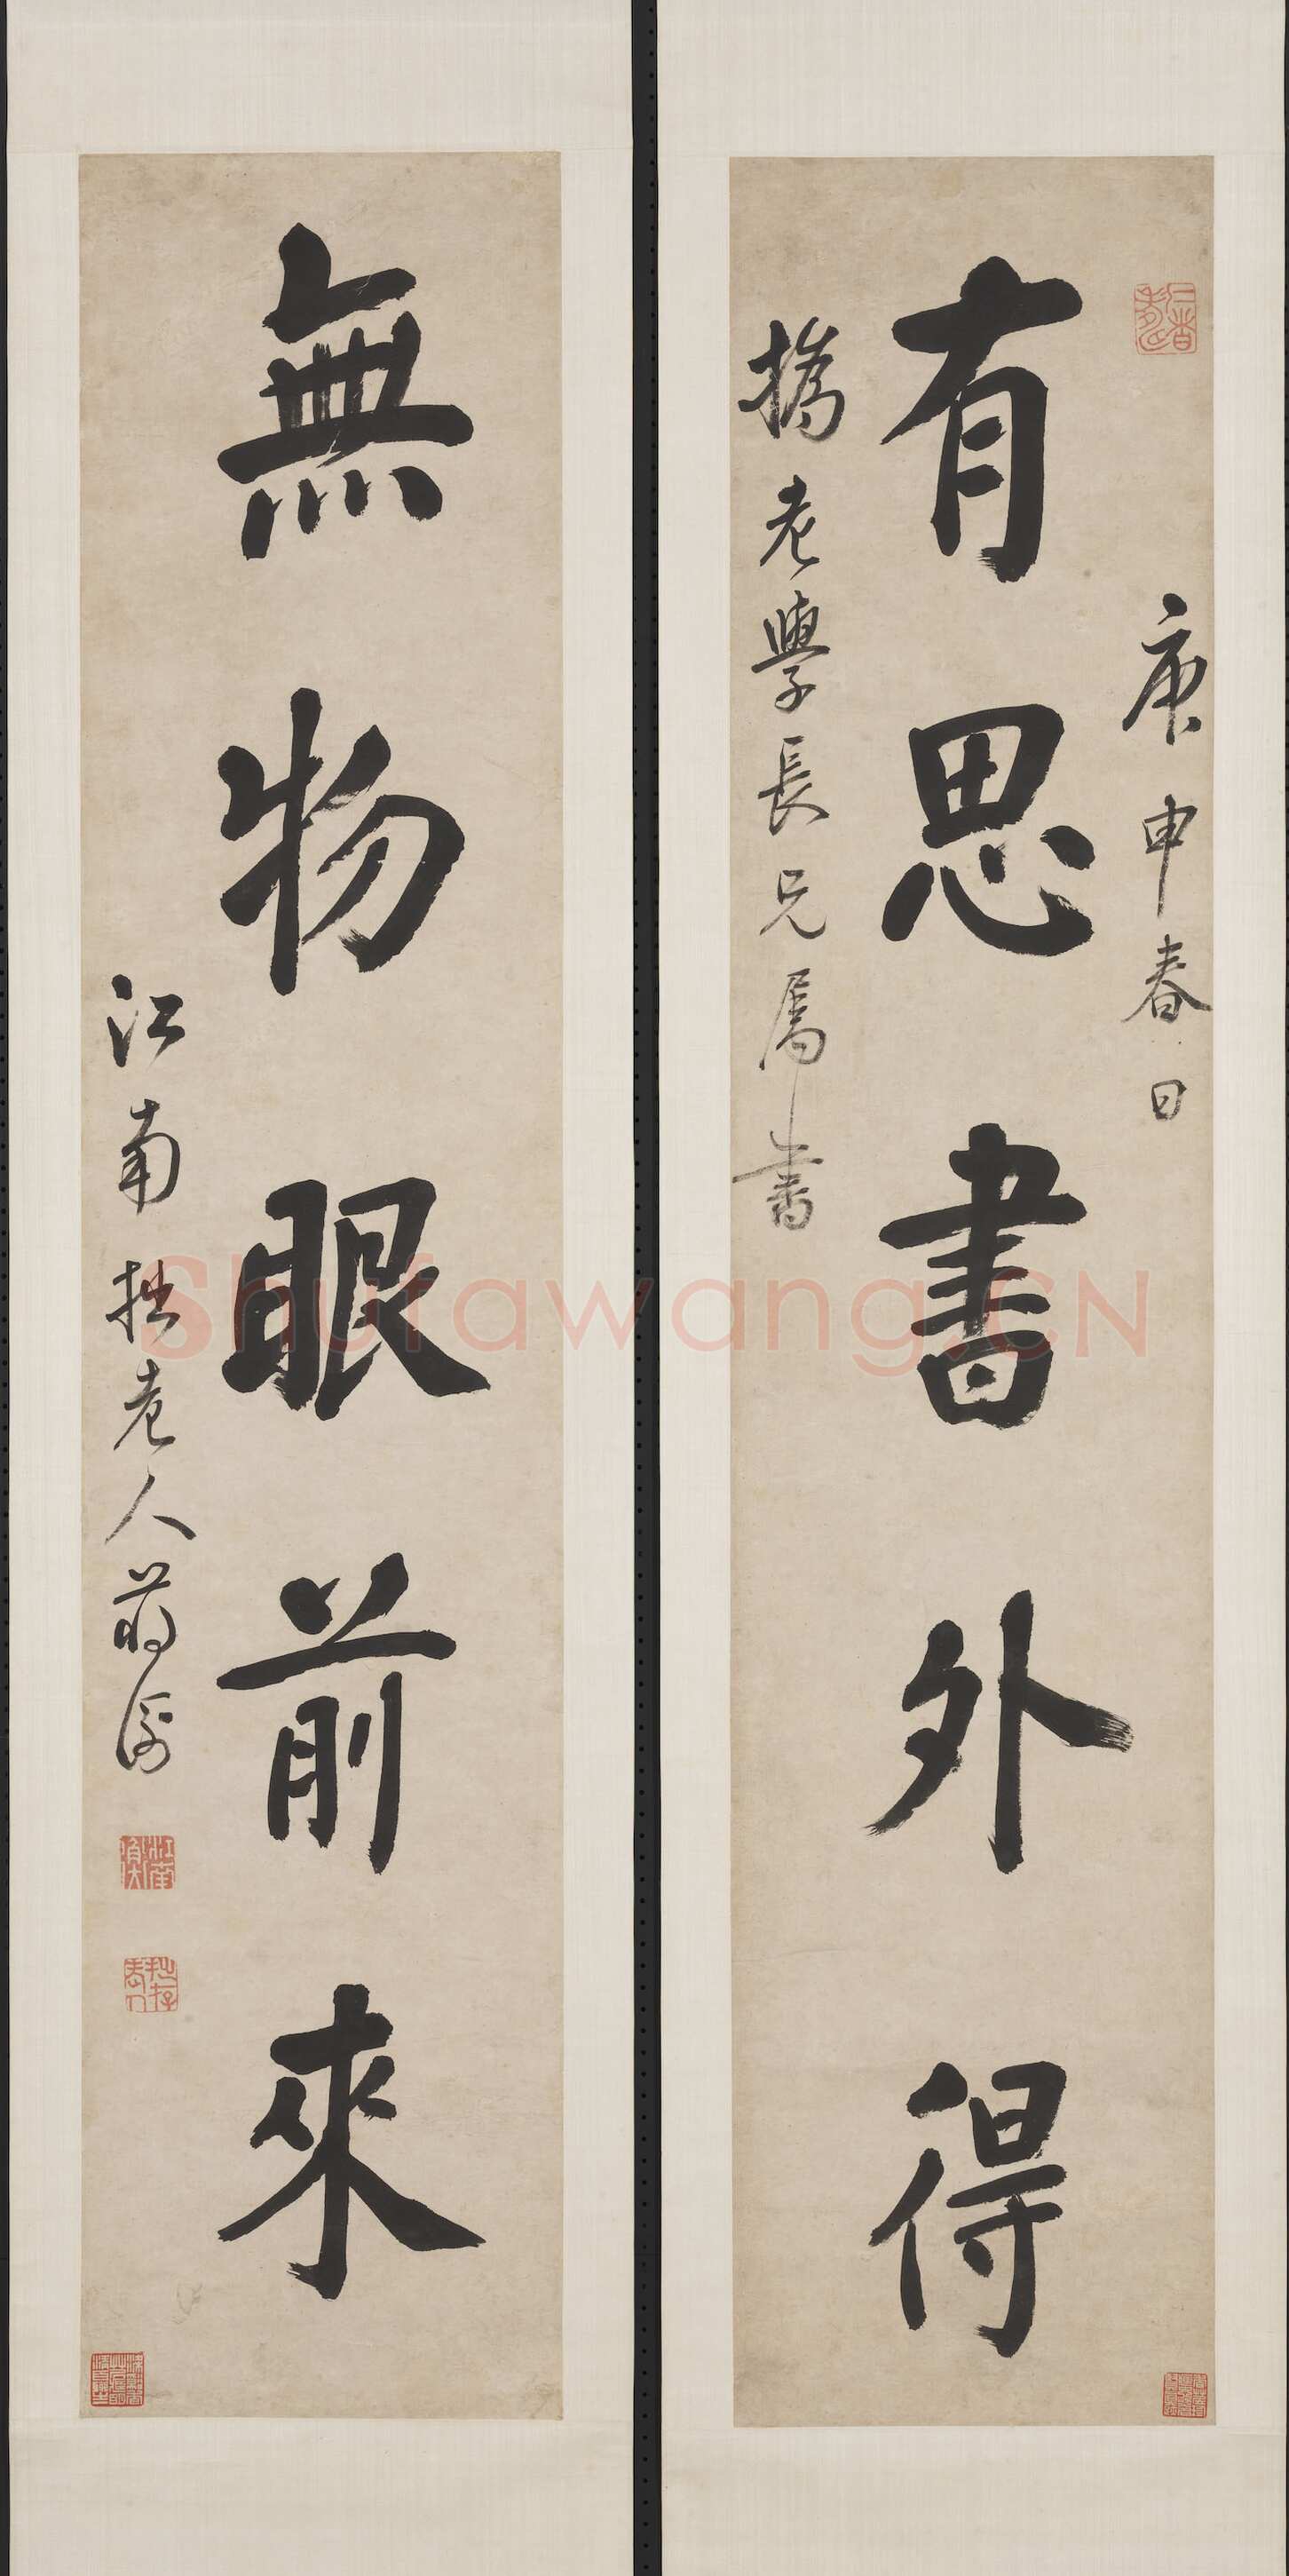 庚申春日
有思書外得
橋老學長兄屬書
無物眼前來
江南拙老人蔣衡
Shufawang.CN